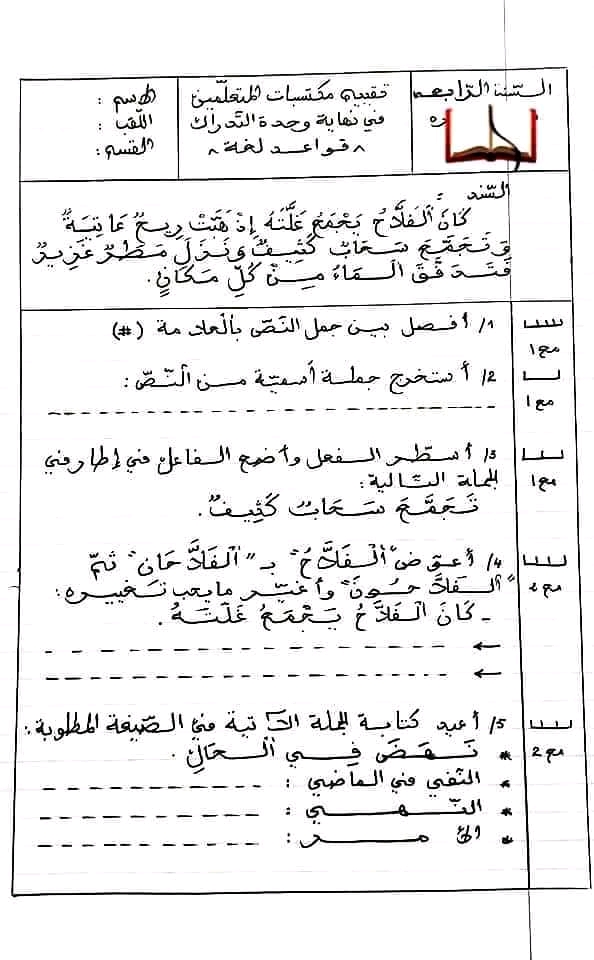 السنة الرّابعة
تقييم مكتسبات المتعلّمين
في نهاية وحدة التّدراك
^ قواعد لغة ^
الاسم :
اللّقب :
القسم :
السّند :
كَانَ اَلْفَلَّاحُ يَجْمَعُ غَلَّتَهُ إِذْ هَبَّتْ رِيحٌ عَاتِيَةٌ
وَتَجَمَّعَ سَحَابٌ كَثِيفٌ وَنَزَلَ مَطَرٌ غَزِيرٌ
فَتَدَفَّقَ الْمَاءُ مِنْ كُلِّ مَكَانٍ.
1/ أفصل بين جمل النّصّ بالعلامة (#)
مع 1
2/ أستخرج جملة أسميّة من النّصّ :
مع 1
3/ أسطّر الفعل وأضع الفاعل في إطار في
الجملة التّالية :
مع 1
تَجَمَّعَ سَحَابٌ كَثِيفٌ.
4/ أعوّض "اَلْفَلَّاحُ" بـ "اَلْفَلَّاحَانِ" ثمّ
"اَلْفَلَّاحُونَ" وأغيّر ما يجب تغييره :
مع 2
- كَانَ الْفَلَّاحُ يَجْمَعُ غَلَّتَهُ.
5/ أعيد كتابة الجملة الآتية في الصّيغة المطلوبة :
مع 2
* نَهَضَ فِي الْحَالِ.
* النّفي في الماضي :
* النّهي :
* الأمر :